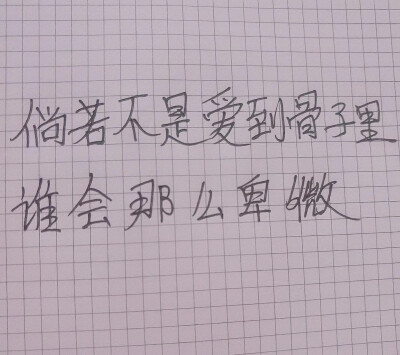 倘若不是爱到骨子里
谁会那么卑微